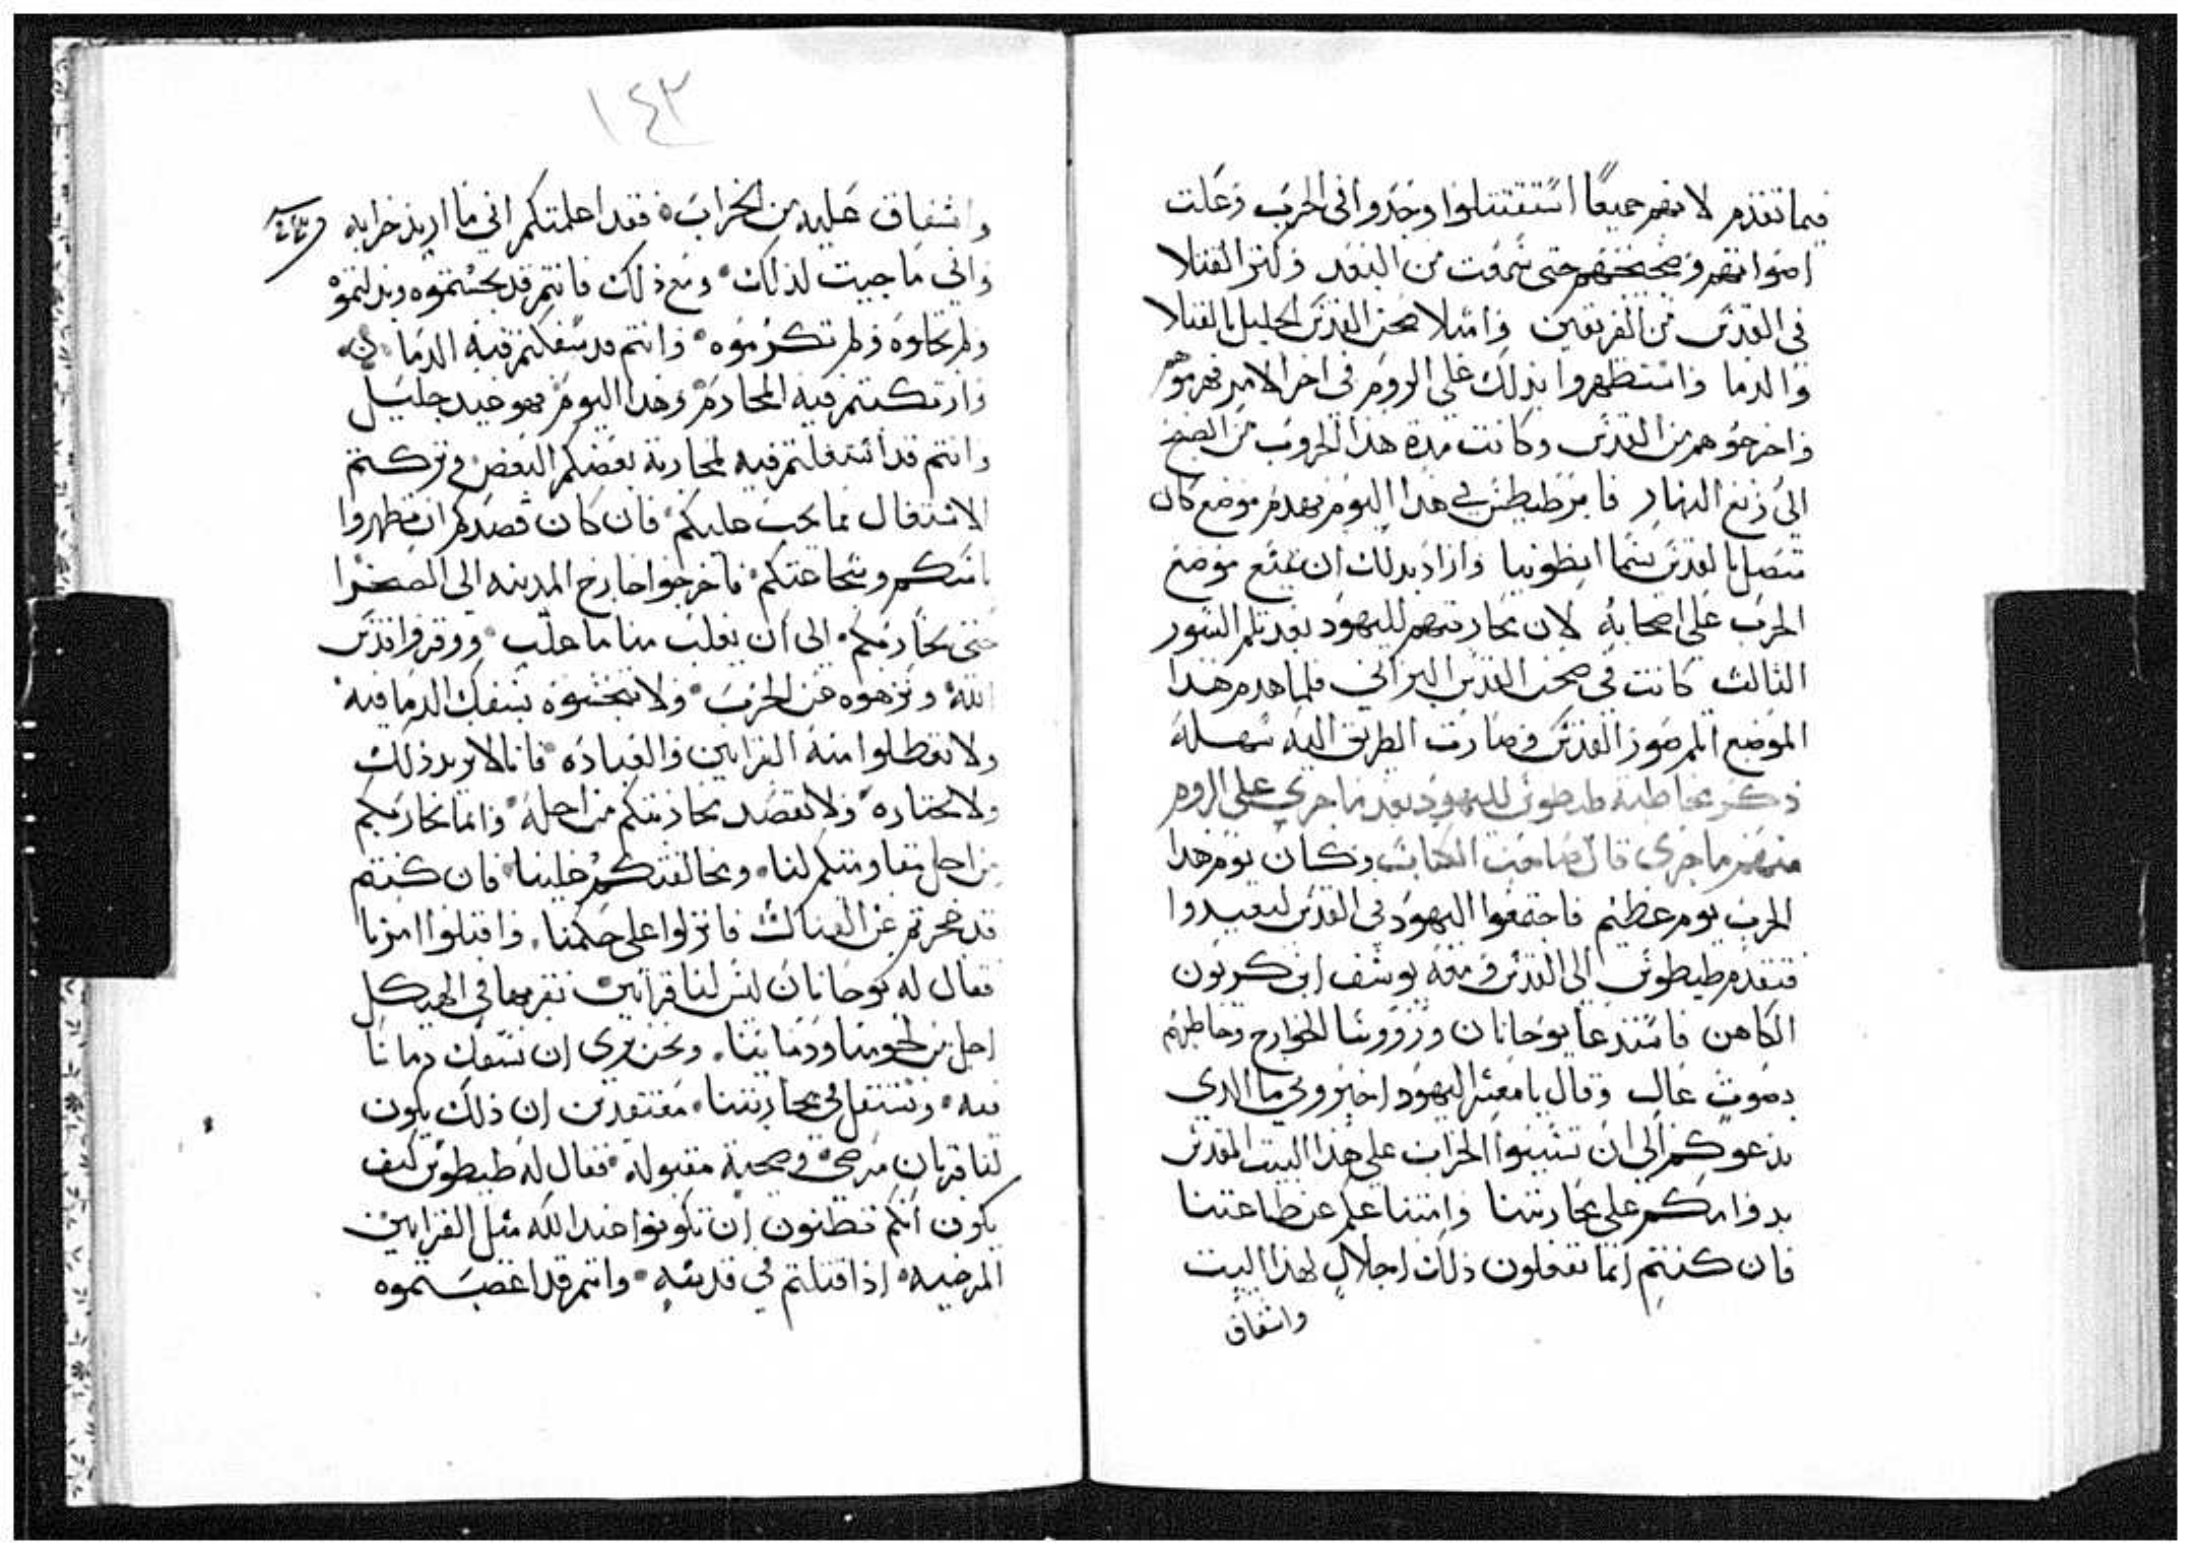 فيما تقدم لانهم جميعًا استقتلوا وجدوا في الحرب وعلت
اصواتهم وضجيجهم حتى سمعت من البعد وكثر القتلا
في القدس من الفريقين وامتلا صحن القدس الجليل بالقتلا
والدما واستظهروا بذلك على الروم في اخر الامر فهزموهم
واخرجوهم من القدس وكانت مدة هذا الحروب من الصبح
الى ربع النهار فامر طيطس في هذا اليوم بهدم موضع كان
متصل بالقدس يسما انطونيا واراد بذلك ان يتسع موضع
الحرب على اصحابه لان محاربتهم لليهود بعد ثلم السور
الثالث كانت في صحن القدس البراني فلما هدم هذا
الموضع انثلم صور القدس وصارت الطريق اليه سهله
ذكر مخاطبة طيطوس لليهود بعد ما جرى على الروم
منهم ما جرى قال صاحب الكتاب وكان يوم هذا
الحرب يوم عظيم فاجتمعوا اليهود في القدس ليعيدوا
فتقدم طيطوس الى القدس ومعه يوسف ابن كريون
الكاهن فاستدعا يوحانان ورووسا الخوارج وخاطبهم
بصوت عال وقال يا معشر اليهود اخبروني ما الذي
يدعوكم الى ان تسببوا الخراب على هذا البيت المقدس
بدوامكم على محاربتنا وامتناعكم عن طاعتنا
فان كنتم انما تفعلون ذلك اجلال لهذا البيت
واشفاق
١٤٣
واشفاق عليه من الخراب فقد اعلمتكم اني ما اريد خرابه
واني ما جيت لذلك ومع ذلك فانتم قد نجستموه وبدلتموه
ولم تجلوه ولم تكرموه وانتم قد سفكتم فيه الدما
وارتكبتم فيه المحارم وهذا اليوم فهو عيد جليل
وانتم قد اشتغلتم فيه لمحاربة بعضكم البعض وتركتم
الاشتغال بما يجب عليكم فان كان قصدكم ان تظهروا
باسكم وشجاعتكم فاخرجوا خارج المدينه الى الصحرا
حتى نحاربكم الى ان يغلب منا ما غلب ووقروا قدس
الله ونزهوه عن الحرب ولا تنجسوه بسفك الدما فيه
ولا تعطلوا منه القرابين والعبادة فانا لا نريد ذلك
ولا نختاره ولا نقصد محاربتكم من اجله وانما نحاربكم
من اجل مقاومتكم لنا ومخالفتكم علينا فان كنتم
قد عجزتم عن القتال فانزلوا على حكمنا واقبلوا امرنا
فقال له يوحانان ليس لنا قرابين نقربها في الهيكل
اجل من لحومنا ودماينا ونحن نرى ان نسفك دمانا
فيه ونستقتل في محاربتنا معتقدين ان ذلك يكون
لنا قربان مرضي وضحية مقبوله فقال له طيطوس كيف
يكون انكم تظنون ان تكونوا عند الله مثل القرابين
المرضيه اذا قتلتم في قدسه وانتم قد اغضبتموه